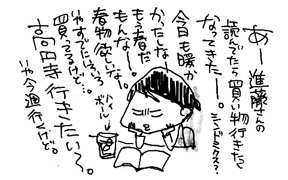 あー進藤さんの
読んでたら買い物行きたく
なってきたー。
シンドミクス?
今日も暖か
かったなー
もう春だ
もんなー。
春物欲しいな
いやすでにいろいろ
買ってるけど…。
高円寺行きたいぃ〜。
いや今週行くけど。
ハイボール